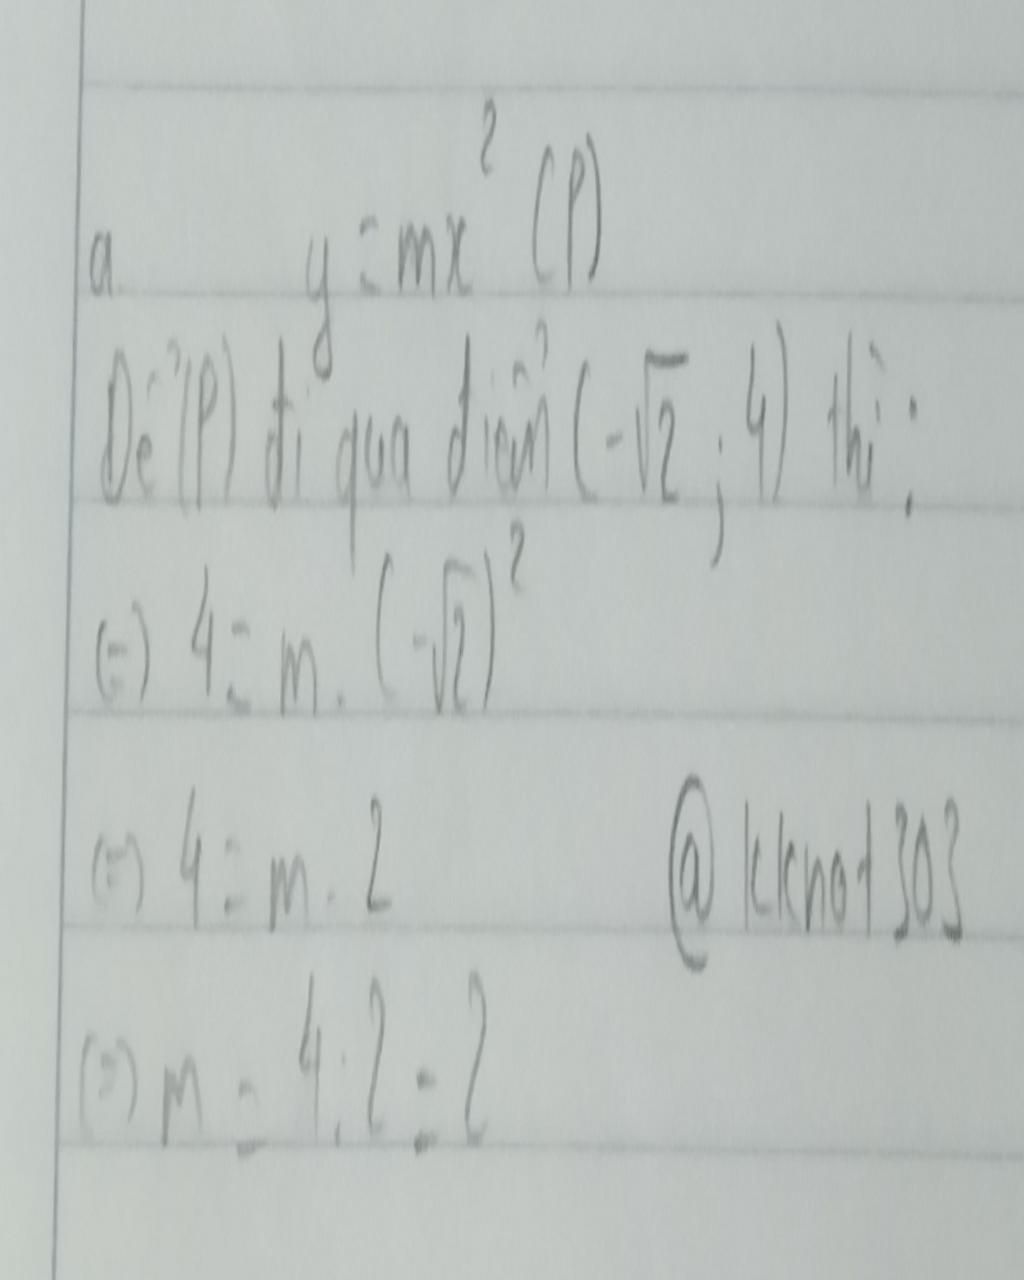 a. y = mx² (P)
Để (P) đi qua điểm (-√2 ; 4) thì :
(=) 4 = m . (-√2)²
(=) 4 = m . 2
@kknot303
(=) m = 4 : 2 = 2